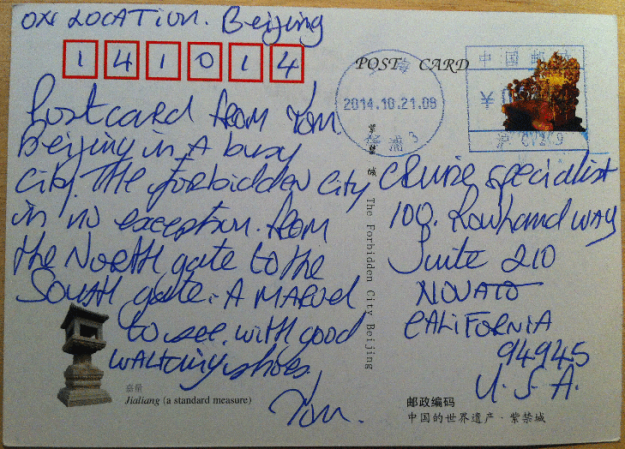 ON LOCATION. Beijing
1 4 1 0 1 4
Postcard from Tom.
Beijing is a busy
City. The forbidden City
is no exception. from
the NORTH gate to the
SOUTH gate. A MARVEL
to see. with good
WALKING shoes.
Tom.
嘉量
Jialiang (a standard measure)
POST CARD
中国邮政
2014.10.21.09
紫禁城 The Forbidden City Beijing
CRuise specialist
100. Rowland WAY
Suite 210
NOVATO
CALIFORNIA
94945
U.S.A.
邮政编码
中国的世界遗产·紫禁城